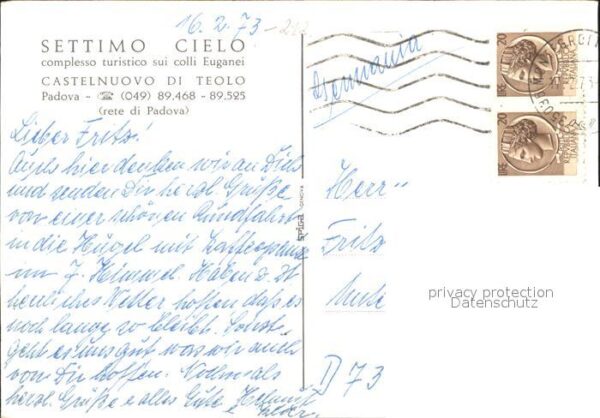 16.2.73
SETTIMO CIELO
complesso turistico sui colli Euganei
CASTELNUOVO DI TEOLO
Padova - ☎ (049) 89.468 - 89.525
(rete di Padova)
Germania
Lieber Fritz!
Auch hier denken wir an Dich
und senden Dir herzl. Grüße
von einer schönen Rundfahrt
in die Hügel mit Kaffeepause
im 7. Himmel. Haben z. Zt.
herrliches Wetter hoffen daß es
noch lange so bleibt. Sonst
geht es uns gut was wir auch
von Dir hoffen. Nochmals
herzl. Grüße & alles Gute
GENOVA
Herrn
Fritz
D 73
privacy protection
Datenschutz
20
20